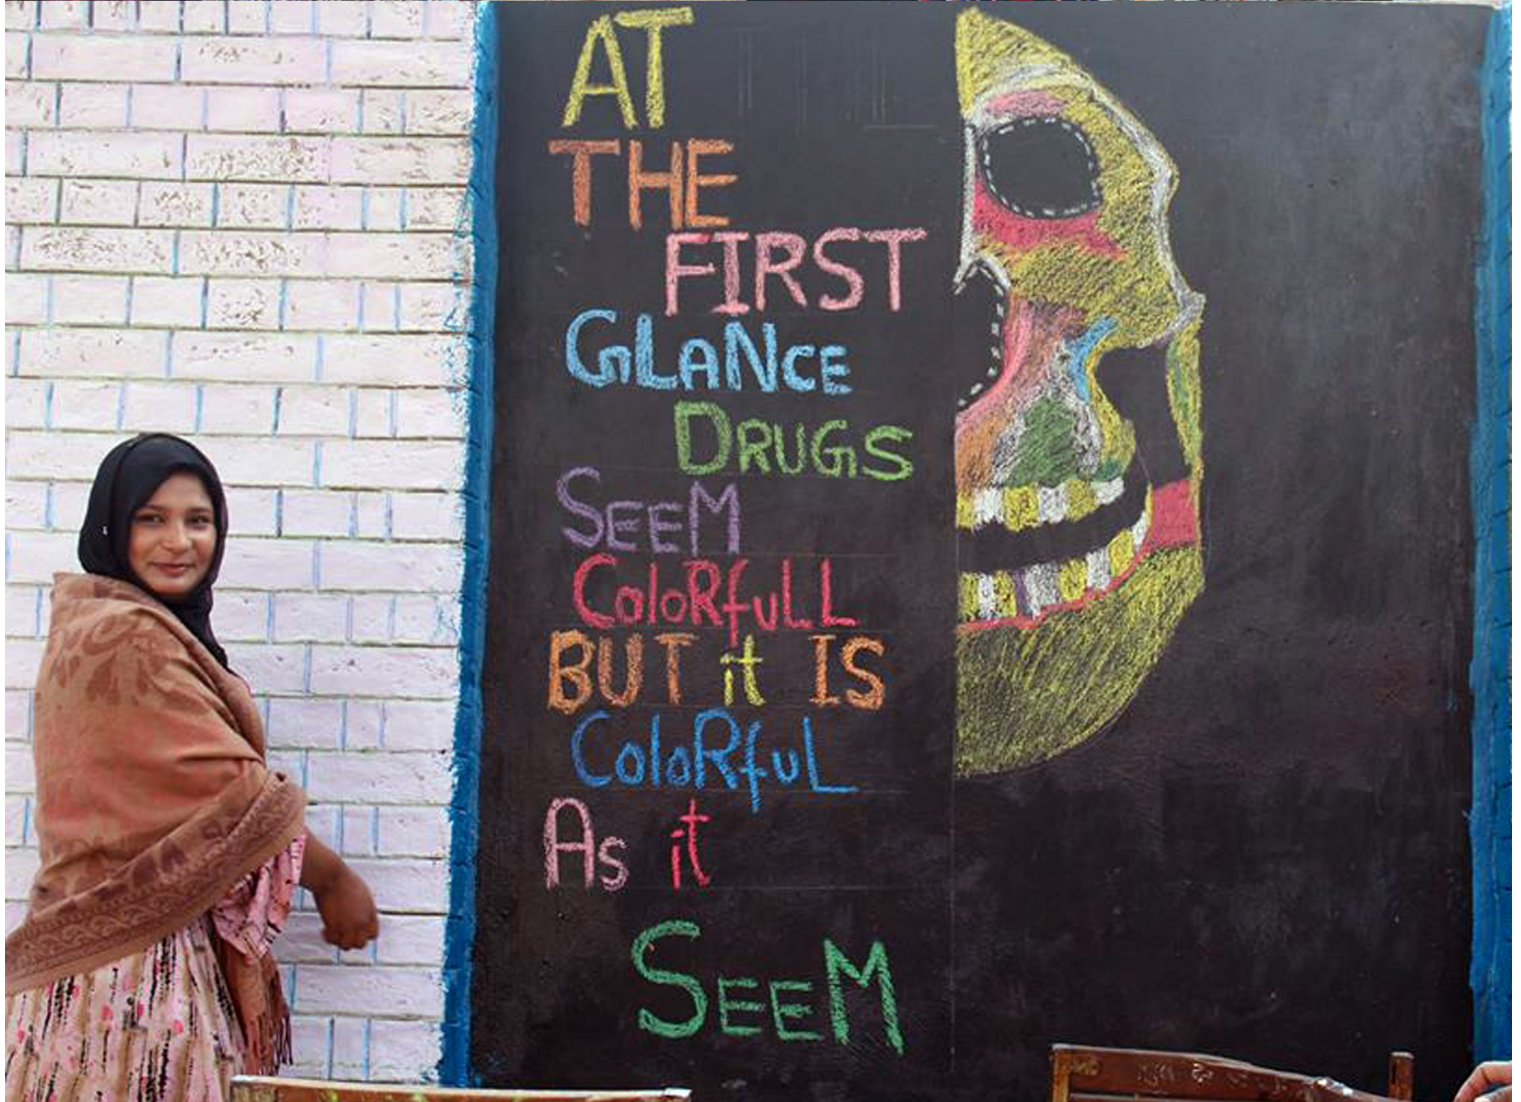 AT
THE
FIRST
GLANCE
DRUGS
SEEM
ColoRfuLL
BUT it IS
ColoRfuL
As it
SEEM